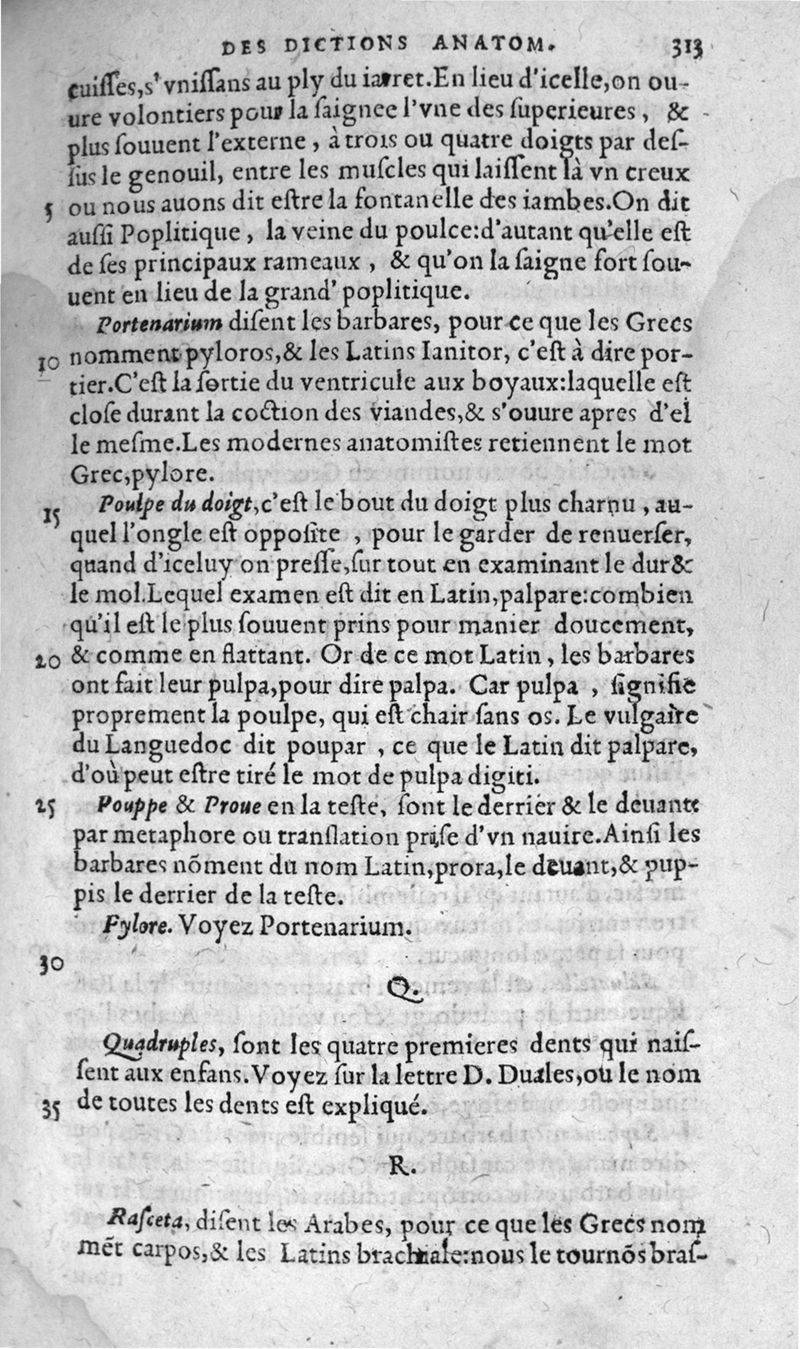 DES DICTIONS ANATOM. 313
cuiſſes,s'vniſſans au ply du iarret.En lieu d'icelle,on ou-
ure volontiers pour la ſaignee l'vne des ſuperieures, &
plus ſouuent l'externe, à trois ou quatre doigts par deſ-
ſus le genouil, entre les muſcles qui laiſſent là vn creux
5 ou nous auons dit eſtre la fontanelle des iambes.On dit
auſſi Poplitique, la veine du poulce:d'autant qu'elle eſt
de ſes principaux rameaux, & qu'on la ſaigne fort ſou-
uent en lieu de la grand' poplitique.
Portenarium diſent les barbares, pour ce que les Grecs
10 nomment pyloros,& les Latins Ianitor, c'eſt à dire por-
tier.C'eſt la ſortie du ventricule aux boyaux:laquelle eſt
cloſe durant la coction des viandes,& s'ouure apres d'el
le meſme.Les modernes anatomiſtes retiennent le mot
Grec,pylore.
15 Poulpe du doigt,c'eſt le bout du doigt plus charnu, au-
quel l'ongle eſt oppoſite, pour le garder de renuerſer,
quand d'iceluy on preſſe,ſur tout en examinant le dur&
le mol.Lequel examen eſt dit en Latin,palpare:combien
qu'il eſt le plus ſouuent prins pour manier doucement,
20 & comme en flattant. Or de ce mot Latin, les barbares
ont fait leur pulpa,pour dire palpa. Car pulpa, ſignifie
proprement la poulpe, qui eſt chair ſans os. Le vulgaire
du Languedoc dit poupar, ce que le Latin dit palpare,
d'où peut eſtre tiré le mot de pulpa digiti.
25 Pouppe & Proue en la teſte, ſont le derrier & le deuant
par metaphore ou tranſlation priſe d'vn nauire.Ainſi les
barbares nõment du nom Latin,prora,le deuant,& pup-
pis le derrier de la teſte.
Pylore. Voyez Portenarium.
30
Q.
Quadruples, ſont les quatre premieres dents qui naiſ-
ſent aux enfans.Voyez ſur la lettre D. Duales,ou le nom
35 de toutes les dents eſt expliqué.
R.
Raſceta, diſent les Arabes, pour ce que les Grecs nom
mẽt carpos,& les Latins brachiale:nous le tournõs braſ-